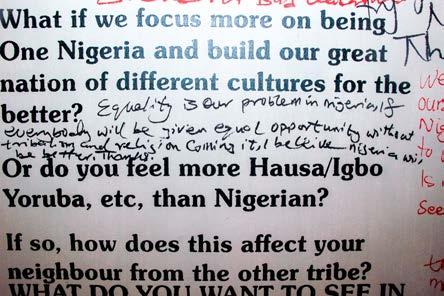 What if we focus more on being
One Nigeria and build our great
nation of different cultures for the
better? Equality is our problem in nigeria, if
everybody will be given equal opportunity without
tribalism and religion coming it, I believe nigeria wil
be better. Thanks.
Or do you feel more Hausa/Igbo
Yoruba, etc, than Nigerian?
If so, how does this affect your
neighbour from the other tribe?
WHAT DO YOU WANT TO SEE IN
Th
We
our
Nig
to
Is
See